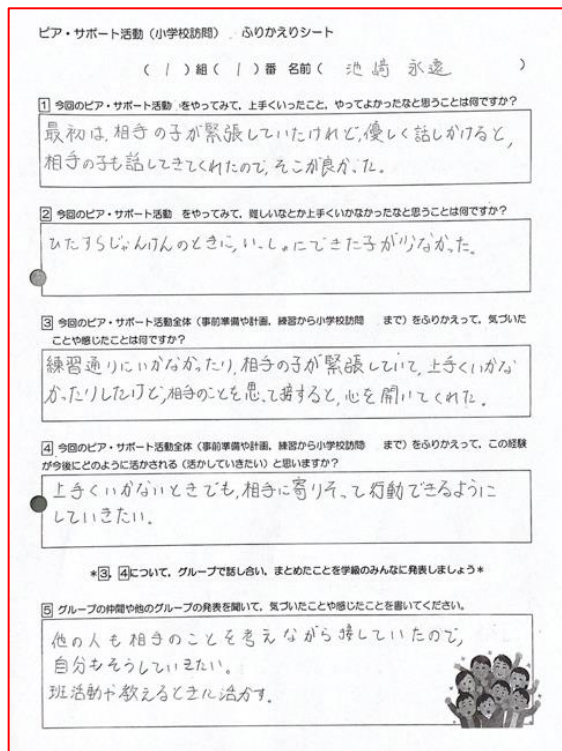 ピア・サポート活動（小学校訪問） ふりかえりシート
（ 1 ）組（ 1 ）番 名前（ 池崎 永遠 ）
1 今回のピア・サポート活動 をやってみて、上手くいったこと、やってよかったなと思うことは何ですか？
最初は,相手の子が緊張していたけれど,優しく話しかけると,
相手の子も話してきてくれたので,そこが良かった。
2 今回のピア・サポート活動 をやってみて、難しいなとか上手くいかなかったなと思うことは何ですか？
ひたすらじゃんけんのときに,いっしょにできた子が少なかった。
3 今回のピア・サポート活動全体（事前準備や計画、練習から小学校訪問 まで）をふりかえって、気づいた
ことや感じたことは何ですか？
練習通りにいかなかったり,相手の子が緊張していて,上手くいかな
かったりしたけど,相手のことを思って接すると,心を開いてくれた。
4 今回のピア・サポート活動全体（事前準備や計画、練習から小学校訪問 まで）をふりかえって、この経験
が今後にどのように活かされる（活かしていきたい）と思いますか？
上手くいかないときでも,相手に寄りそって行動できるように
していきたい。
＊3、4について、グループで話し合い、まとめたことを学級のみんなに発表しましょう＊
5 グループの仲間や他のグループの発表を聞いて、気づいたことや感じたことを書いてください。
他の人も相手のことを考えながら接していたので,
自分もそうしていきたい。
班活動や教えるときに活かす。